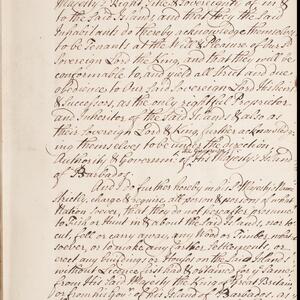 Majesty's Right Title & Sovereignty of in &
to the Said Islands, and that they the Said
Inhabitants do thereby acknowledge themselves
to be Tenants at the Will & Pleasure of Our Sd
Sovereign Lord the King, and that they will be
conformable to, and yield all Strict and due
obedience to Our Lord Sovereign Lord His heirs
& Successors, as the only rightful Proprietor
and Inheritor of the Said Islands, & also as
their Sovereign Lord & King further acknowledg
ing themselves to be under the direction
Authority & Government of His Majesty's Island
of Barbados;
And I do further hereby in his Majesty's Name
Strictly charge & require all person & persons of what
Nation soever, that they do not hereafter presume
to Fish or Hunt in & about the said Islands, nor to
cut, fell or carry away any Wood or Timber what
soever, or to make any farther Settlements, or
erect any buildings or Houses on the Said Islands
without Licence first had & obtained for the Same,
from His Said Majesty the King of Great Britain
or from his Gov. of this Island of Barbados, as